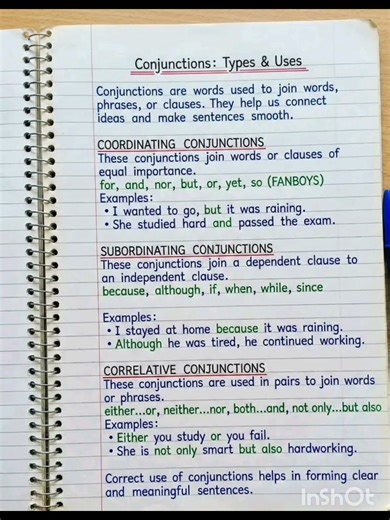 Conjunctions: Types & Uses
Conjunctions are words used to join words,
phrases, or clauses. They help us connect
ideas and make sentences smooth.
COORDINATING CONJUNCTIONS
These conjunctions join words or clauses of
equal importance.
for, and, nor, but, or, yet, so (FANBOYS)
Examples:
• I wanted to go, but it was raining.
• She studied hard and passed the exam.
SUBORDINATING CONJUNCTIONS
These conjunctions join a dependent clause to
an independent clause.
because, although, if, when, while, since
Examples:
• I stayed at home because it was raining.
• Although he was tired, he continued working.
CORRELATIVE CONJUNCTIONS
These conjunctions are used in pairs to join words
or phrases.
either...or, neither...nor, both...and, not only...but also
Examples:
• Either you study or you fail.
• She is not only smart but also hardworking.
Correct use of conjunctions helps in forming clear
and meaningful sentences.
InShOt